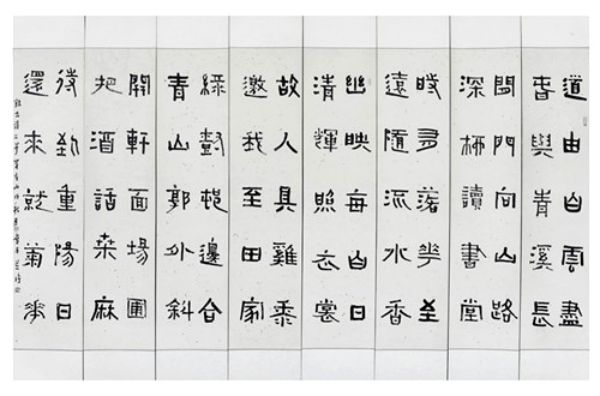 道由白雲盡
春與青溪長
閒門向山路
深柳讀書堂
時有落花至
遠隨流水香
幽映每白日
清輝照衣裳
故人具雞黍
邀我至田家
綠樹邨邊合
青山郭外斜
開軒面場圃
把酒話桑麻
待到重陽日
還來就菊花